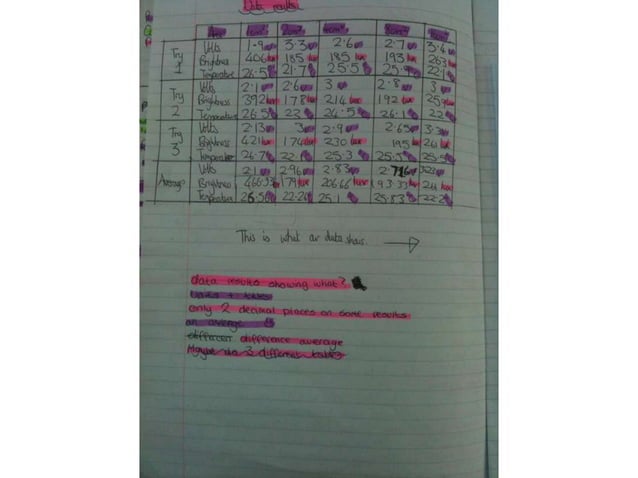 Data results
Area
Try 1 Volts 1.9 3.3 2.6 2.7 3.4
Brightness 406 lux 185 lux 185 lux 193 lux 263 lux
Temperature 26.5 21.7 25.5 22.1
Try 2 Volts 2.1 2.6 3 2.8 3
Brightness 392 lux 178 lux 214 lux 192 lux 259 lux
Temperature 26.5 22 24.5 26.1 22
Try 3 Volts 2.13 3 2.9 2.65 3.3
Brightness 421 lux 174 lux 230 lux 195 lux 261 lux
Temperature 26.7 25.3
Average Volts 2.1 2.96 2.83
Brightness 179 lux 206.66 lux 193.33 lux
Temperature 25.1 25.83
This is what our data shows.
data results showing what?
only 2 decimal places on some results
an average
difference average
Maybe do 2 different tables